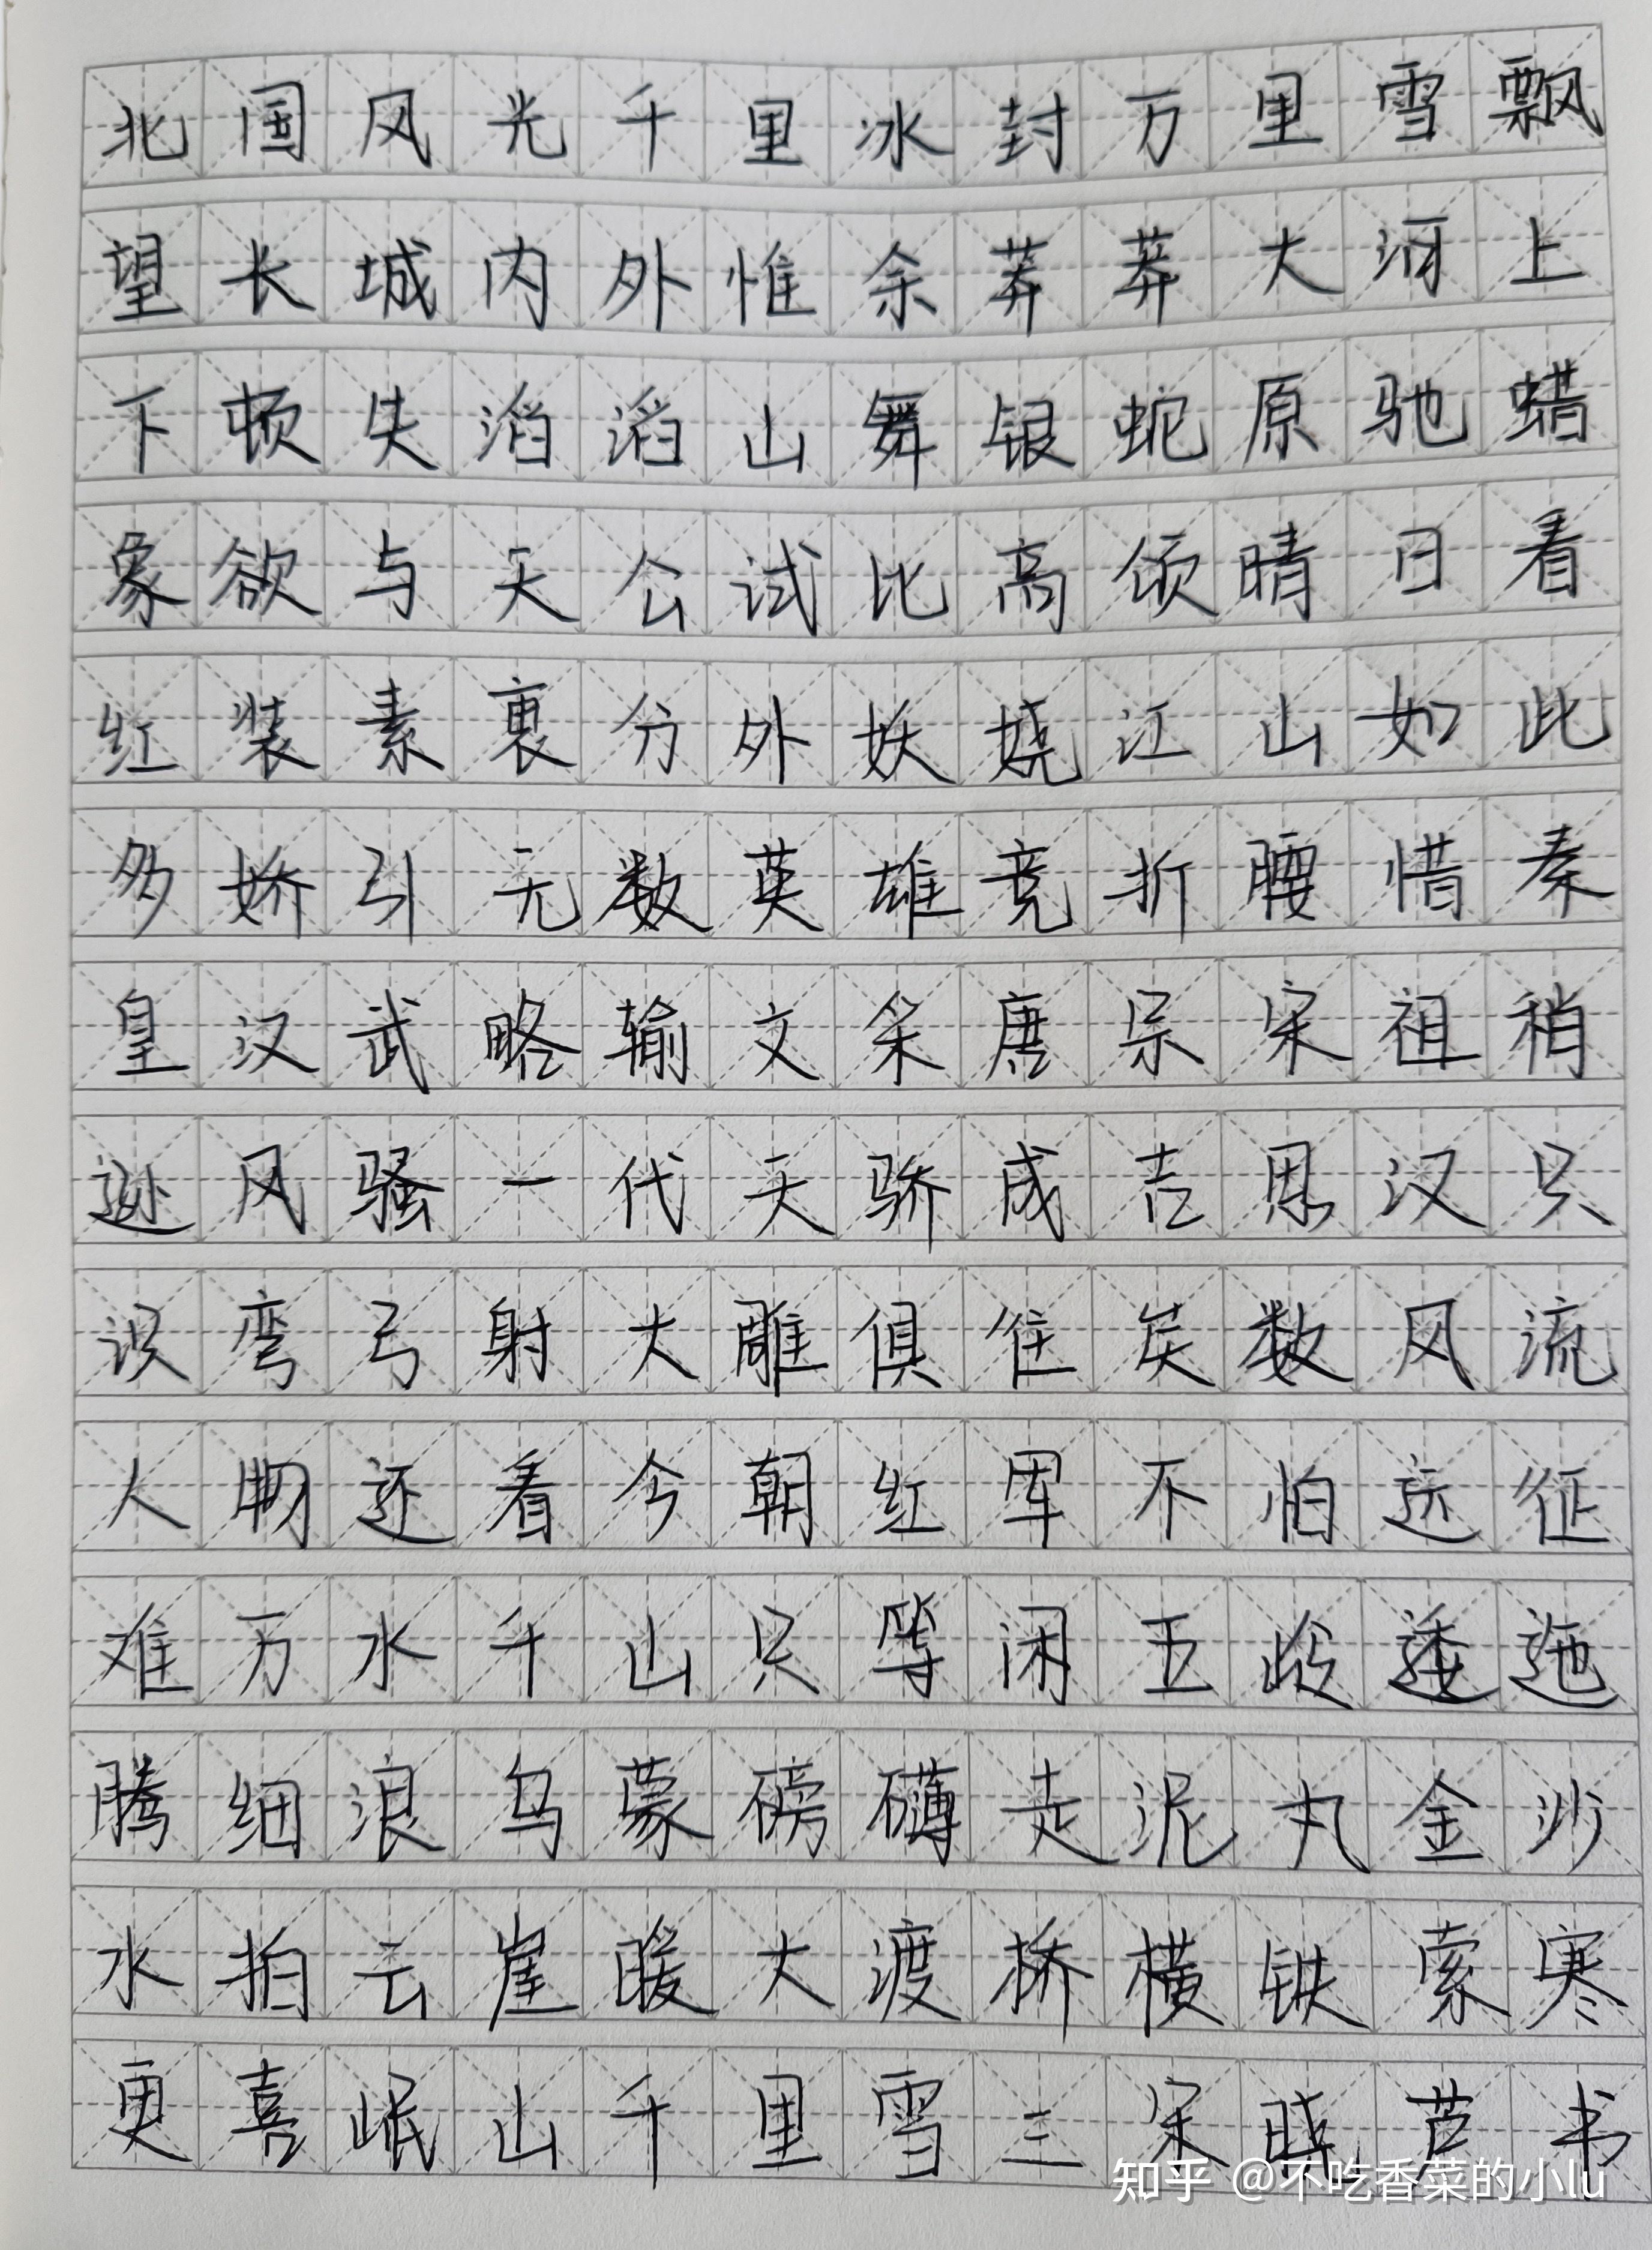 北国风光千里冰封万里雪飘
望长城内外惟余莽莽大河上
下顿失滔滔山舞银蛇原驰蜡
象欲与天公试比高须晴日看
红装素裹分外妖娆江山如此
多娇引无数英雄竞折腰惜秦
皇汉武略输文采唐宗宋祖稍
逊风骚一代天骄成吉思汉只
识弯弓射大雕俱往矣数风流
人物还看今朝红军不怕远征
难万水千山只等闲五岭逶迤
腾细浪乌蒙磅礴走泥丸金沙
水拍云崖暖大渡桥横铁索寒
更喜岷山千里雪三宋晓芦书
知乎 @不吃香菜的小lu